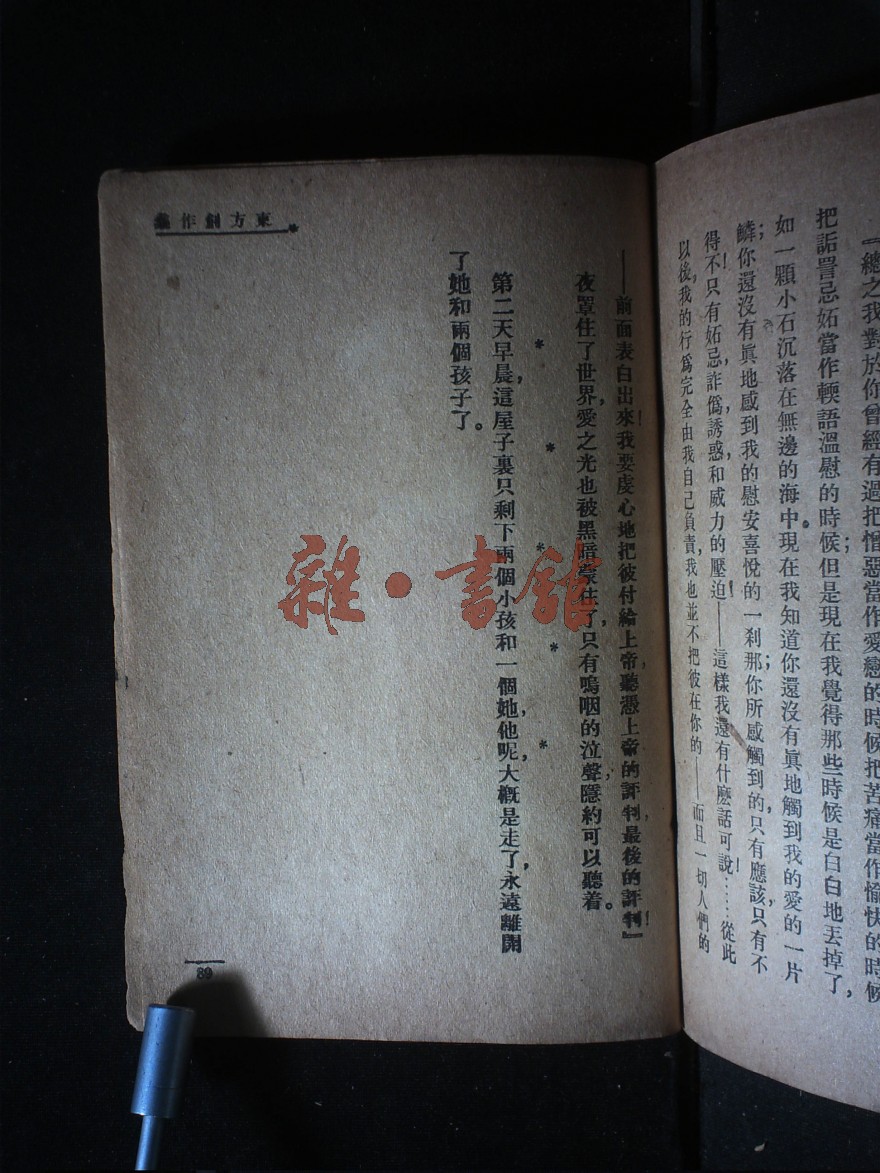 『總之我對於你曾經有過把憎惡當作愛戀的時候把苦痛當作愉快的時候
把詬詈忌妬當作輭語溫慰的時候；但是現在我覺得那些時候是白白地丟掉了，
如一顆小石沉落在無邊的海中。現在我知道你還沒有眞地觸到我的愛的一片
鱗；你還沒有眞地感到我的慰安喜悅的一刹那；你所感觸到的，只有應該，只有不
得不！只有妬忌，詐僞，誘惑和威力的壓迫！——這樣我還有什麽話可說！……從此
以後，我的行爲完全由我自己負責，我也並不把彼在你的——而且一切人們的
——前面表白出來！我要虔心地把彼付給上帝，聽憑上帝的評判，最後的評判！』
夜罩住了世界，愛之光也被黑暗蒙住了，只有嗚咽的泣聲，隱約可以聽着。
* * * * *
第二天早晨，這屋子裏只剩下兩個小孩和一個她，他呢，大概是走了，永遠離開
了她和兩個孩子了。
東方創作集
89
雜·書館